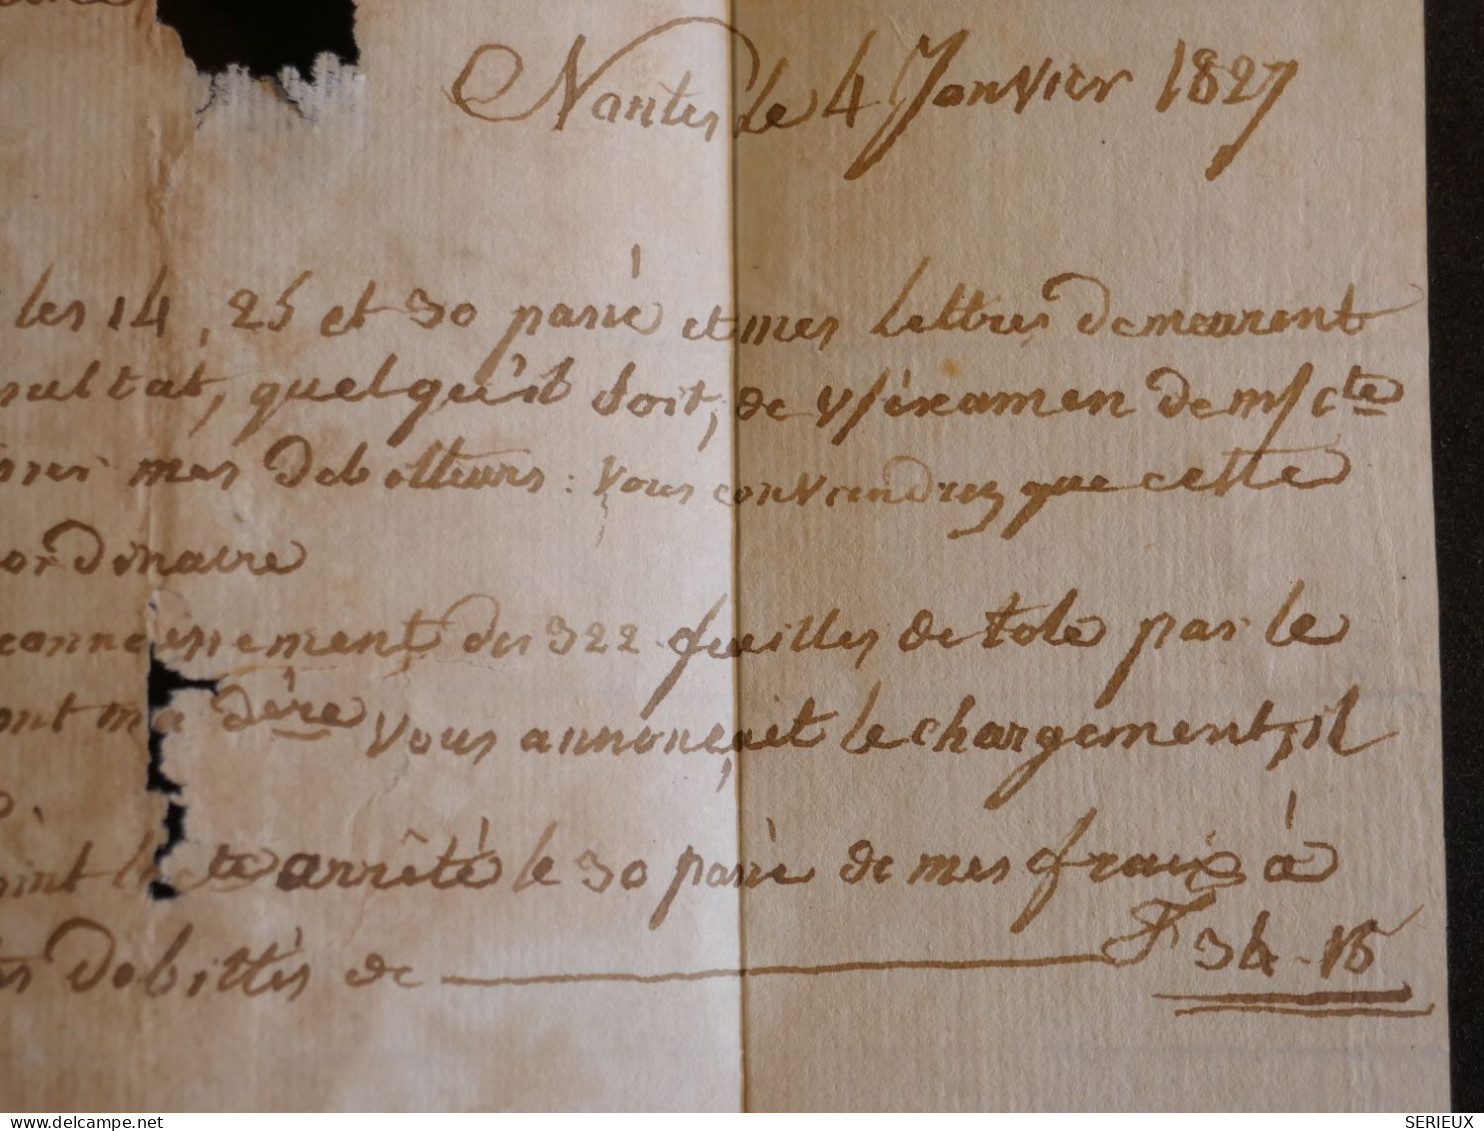 Nantes le 4 Janvier 1827
les 14, 25 et 30 passé et mes lettres demeurent
sultat, quelqu'il soit, de v/examen de m/cte
mes debolteurs : vous conviendrez que cette
ordinaire
connaissement des 322 feuilles de tole par le
ont ma dère vous annonçait le chargement, il
oint le cte arrêté le 30 passé de mes fraix à
debittés de F 34-15
www.delcampe.net
SERIEUX